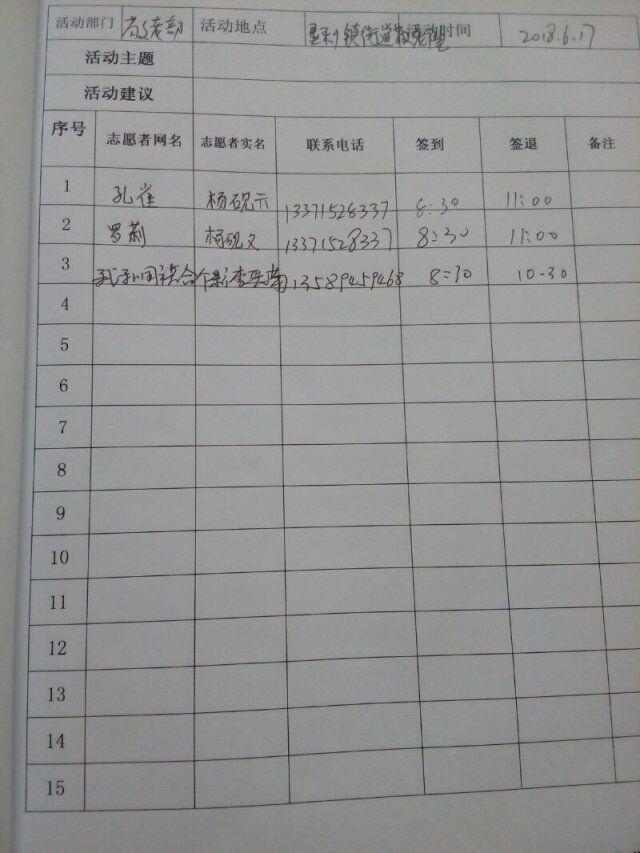 活动部门 敬老部 活动地点 垦利镇街道敬老院 活动时间 2018.6.17
活动主题
活动建议
序号 志愿者网名 志愿者实名 联系电话 签到 签退 备注
1 孔雀 杨砚 13371528337 8:30 11:00
2 罗莉 杨砚文 13371528337 8:30 11:00
3 13589459468 8:30 10-30
4
5
6
7
8
9
10
11
12
13
14
15